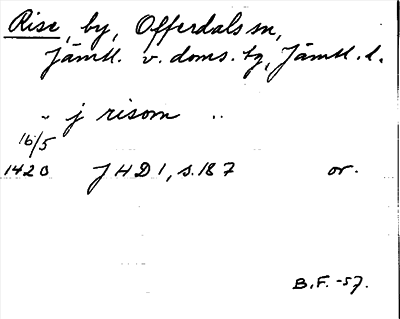 Rise, by, Offerdals sn,
Jämtl. v. doms. tg, Jämtl. l.
" j risom ..
16/5
1420 JHD 1, s. 187 or.
B.F. -57.